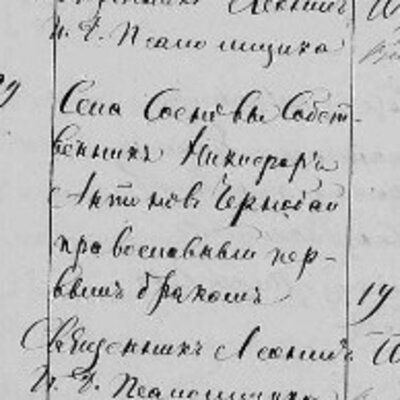 И. Д. Псаломщика
29
Села Сосновы Собст-
венникъ Никифоръ
Антоновъ Чернобай
православный пер-
вымъ бракомъ
19
Священникъ Леонидъ
И. Д. Псаломщика